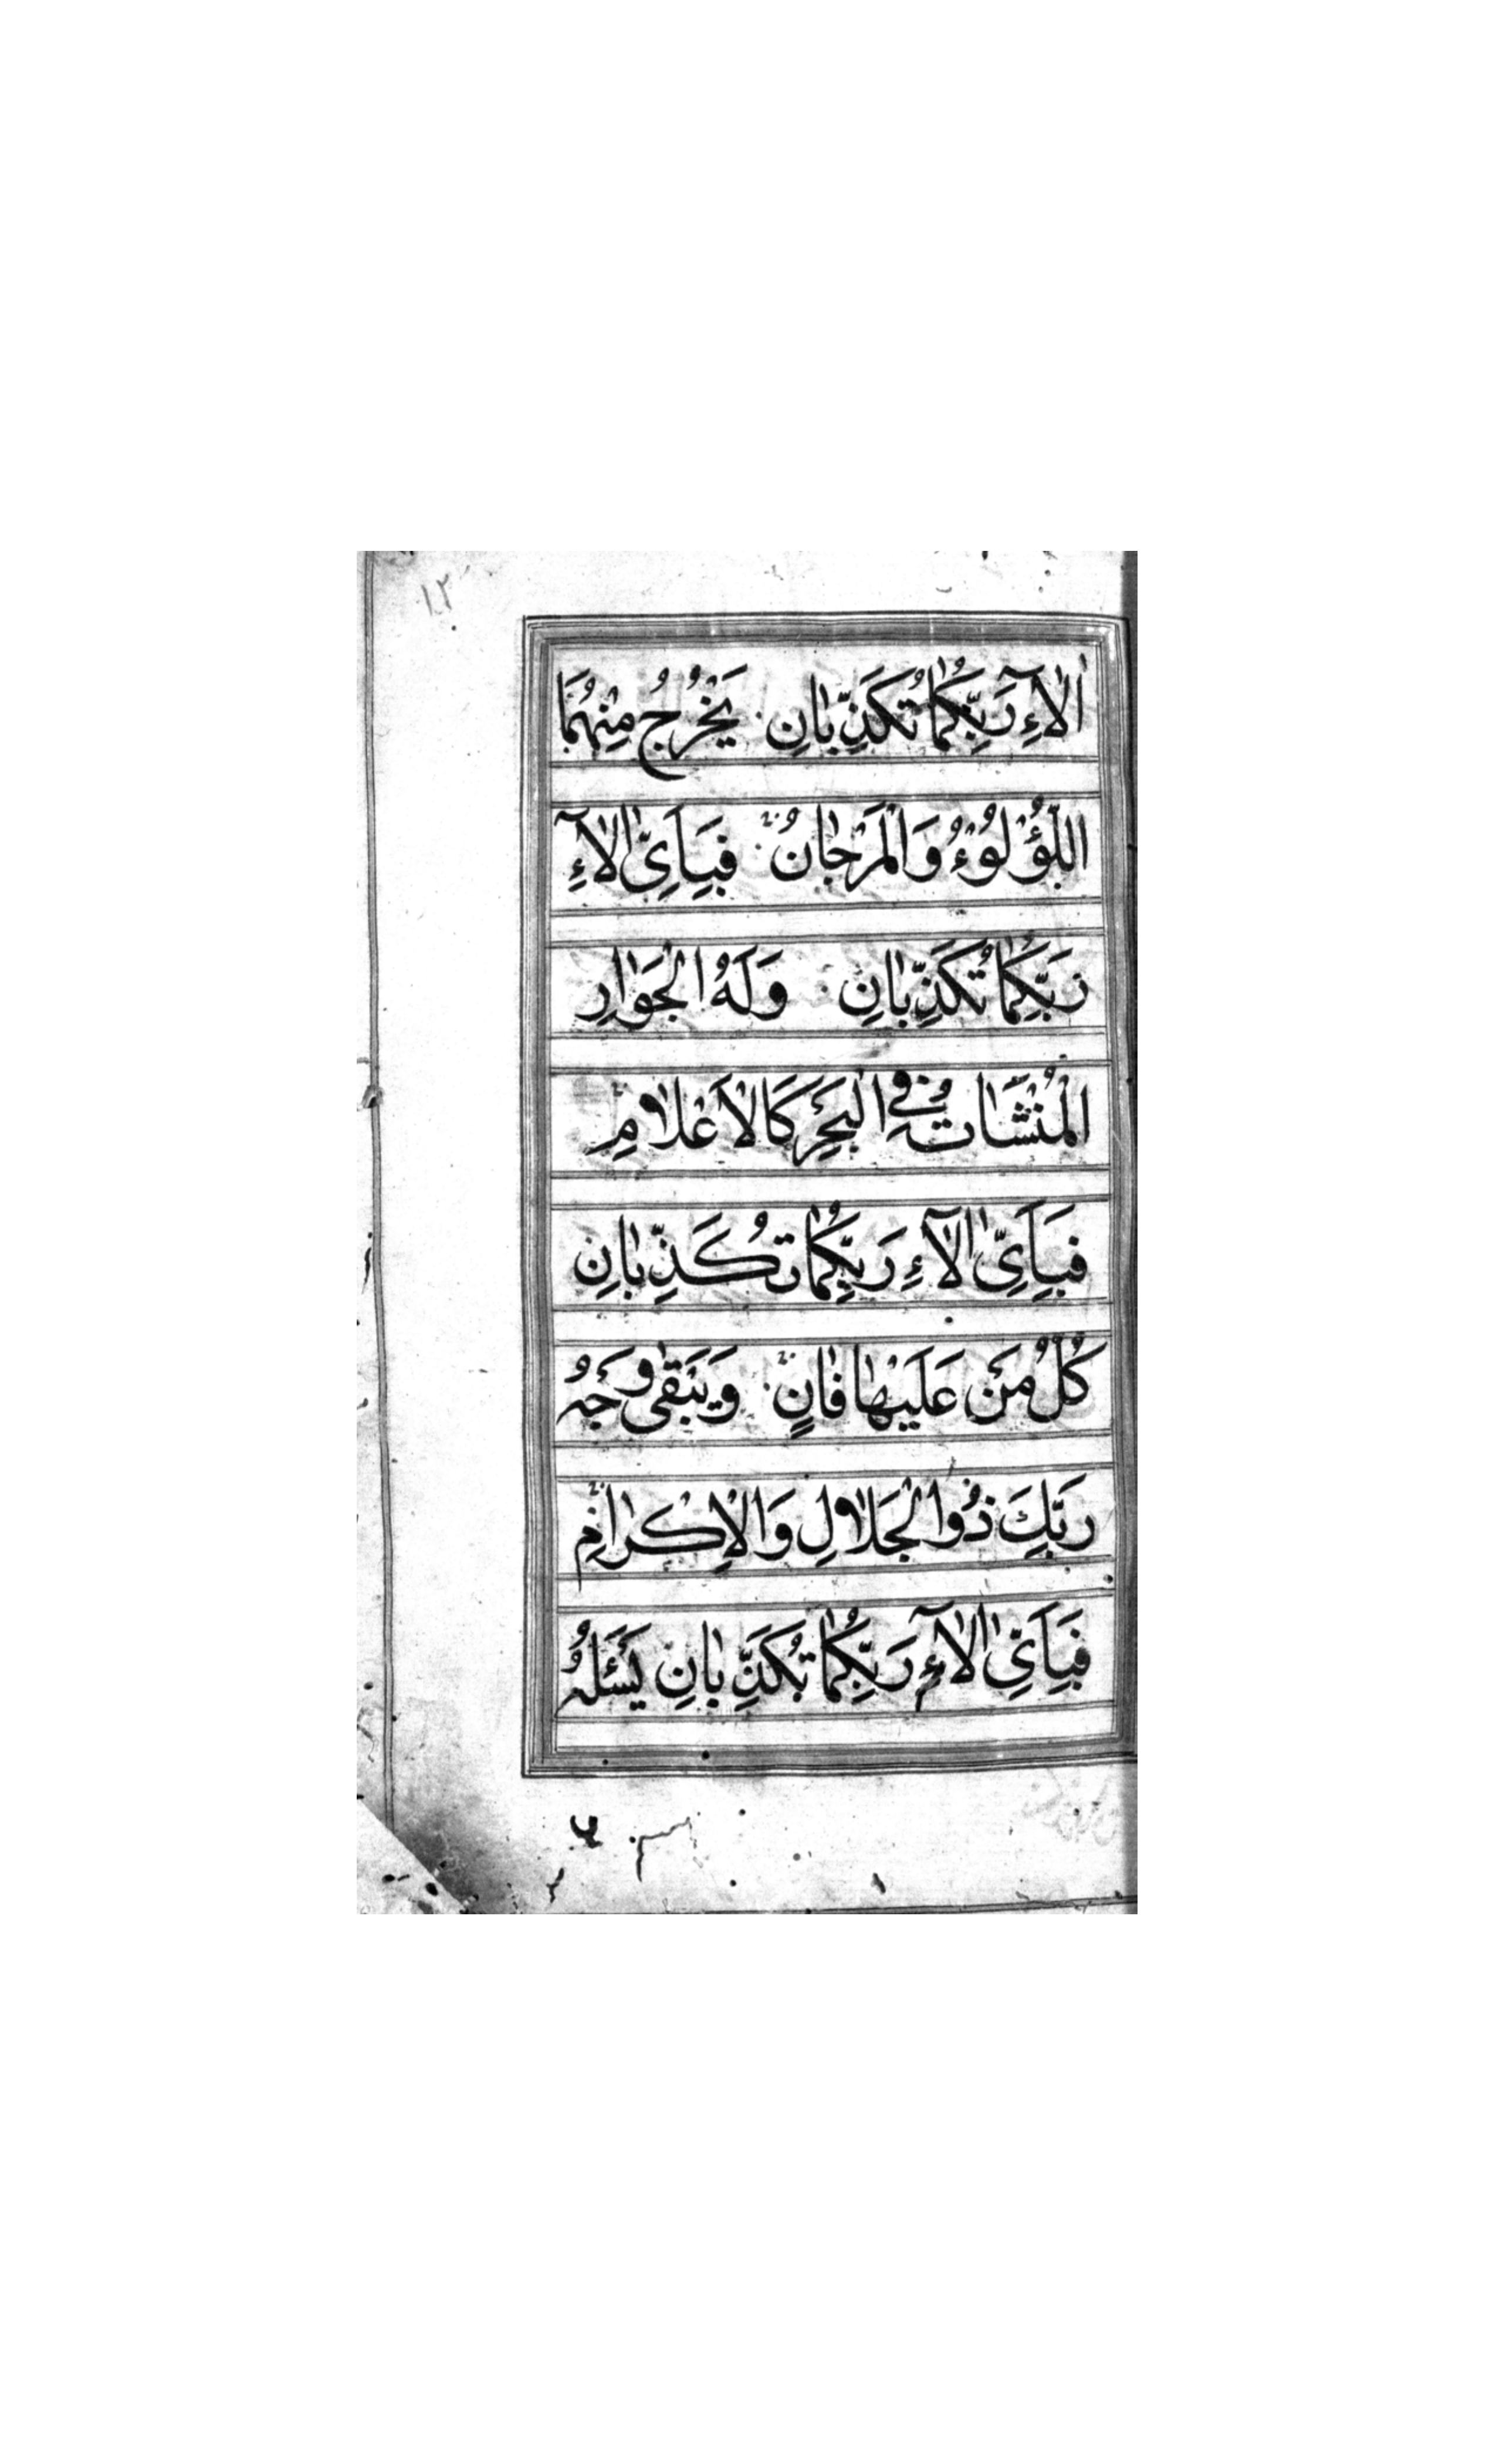 ١٢
اٰلآءِ رَبِّكُمٰا تُكَذِّبٰانِ يَخْرُجُ مِنْهُمَا
اللُّؤْلُوْءُ وَالْمَرْجٰانُ فَبِاَىِّ اٰلآءِ
رَبِّكُمٰا تُكَذِّبٰانِ وَلَهُ الْجَوٰارِ
الْمُنْشَآتُ فِى الْبَحْرِ كَالْاَعْلٰامِ
فَبِاَىِّ اٰلآءِ رَبِّكُمٰا تُكَذِّبٰانِ
كُلُّ مَنْ عَلَيْهٰا فٰانٍ وَيَبْقٰى وَجْهُ
رَبِّكَ ذُوالْجَلٰالِ وَالْاِكْرٰامِ
فَبِاَىِّ اٰلآءِ رَبِّكُمٰا تُكَذِّبٰانِ يَسْئَلُهُ